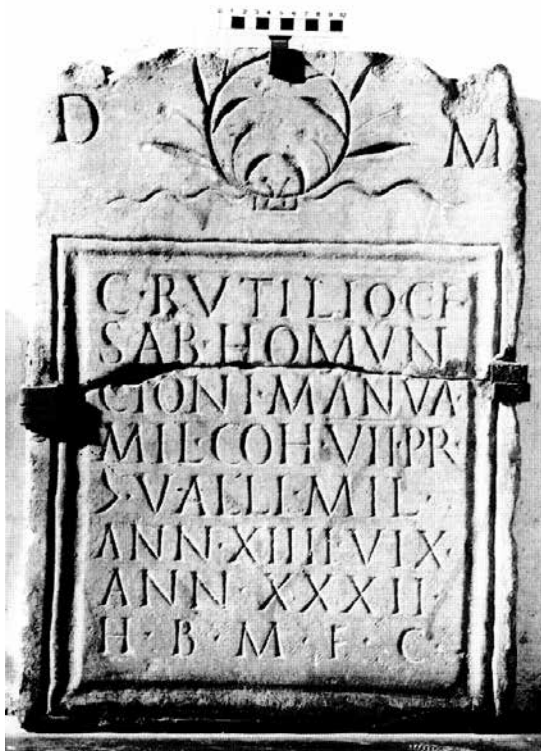 D M
C·RVTILIO·C·F
SAB·HOMVN
CIONI·MANVA·
MIL·COH·VII·PR·
>·VALLI·MIL·
ANN·XIIII·VIX·
ANN·XXXII·
H·B·M·F·C·